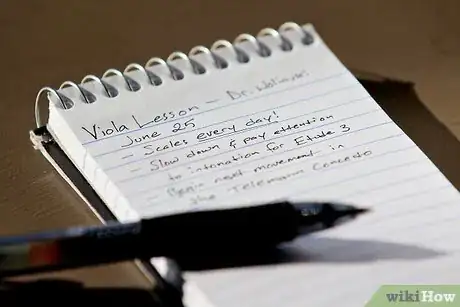 Viola Lesson - Dr.
June 25
- Scales every day!
- Slow down & pay attention
to intonation for Etude 3
- Begin next movement in
the Telemann Concerto
wikiHow